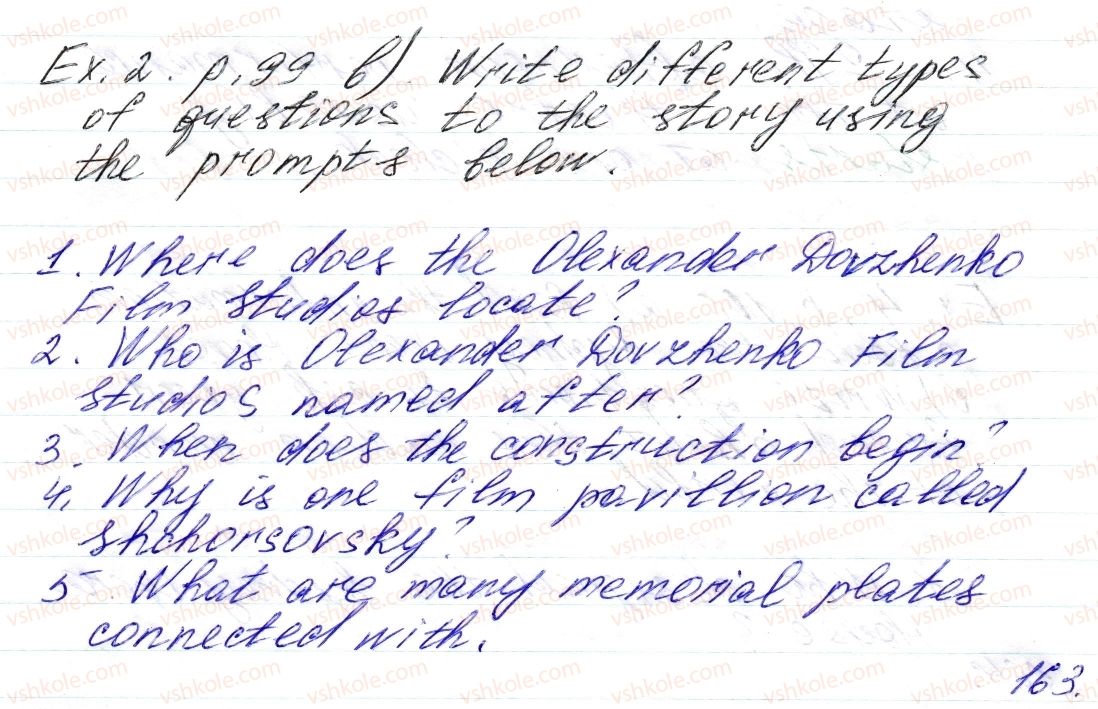 Ex. 2. p. 99 b). Write different types
of questions to the story using
the prompts below.
1. Where does the Olexander Dovzhenko
Film Studios locate?
2. Who is Olexander Dovzhenko Film
Studios named after?
3. When does the construction begin?
4. Why is one film pavillion called
Shchorsovsky?
5. What are many memorial plates
connected with.
163.
vshkole.com